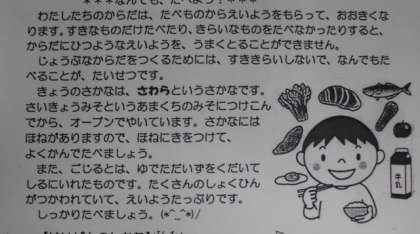 ***なんでも、たべよう！***
わたしたちのからだは、たべものからえいようをもらって、おおきくな
ります。すきなものだけたべたり、きらいなものをたべなかったりすると、
からだにひつようなえいようを、うまくとることができません。
じょうぶなからだをつくるためには、すききらいしないで、なんでもた
べることが、たいせつです。
きょうのさかなは、さわらというさかなです。
さいきょうみそというあまくちのみそにつけこん
でから、オーブンでやいています。さかなには
ほねがありますので、ほねにきをつけて、
よくかんでたべましょう。
また、ごじるとは、ゆでただいずをくだいて
しるにいれたものです。たくさんのしょくひん
がつかわれていて、えいようたっぷりです。
しっかりたべましょう。(*^_^*)/
牛乳